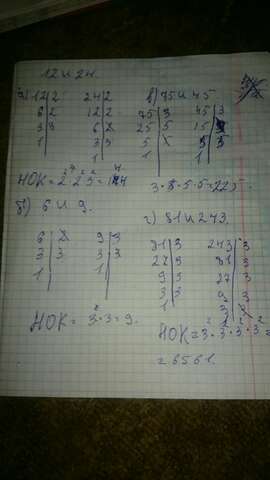 12 и 24.
а) 12 | 2   24 | 2
6 | 2   12 | 2
3 | 3   6 | 2
1 |   3 | 3
1 |
НОК=
в) 75 и 45
75 | 3   45 | 3
25 | 5   15 | 3
5 | 5   5 | 5
1 |   1 |
3·3·5·5=225.
б) 6 и 9.
6 | 2   9 | 3
3 | 3   3 | 3
1 |   1 |
НОК= 3²·3=9.
г) 81 и 243.
81 | 3   243 | 3
27 | 3   81 | 3
9 | 3   27 | 3
3 | 3   9 | 3
1 |   3
НОК=3²·3²·3²·3²=
=6561.